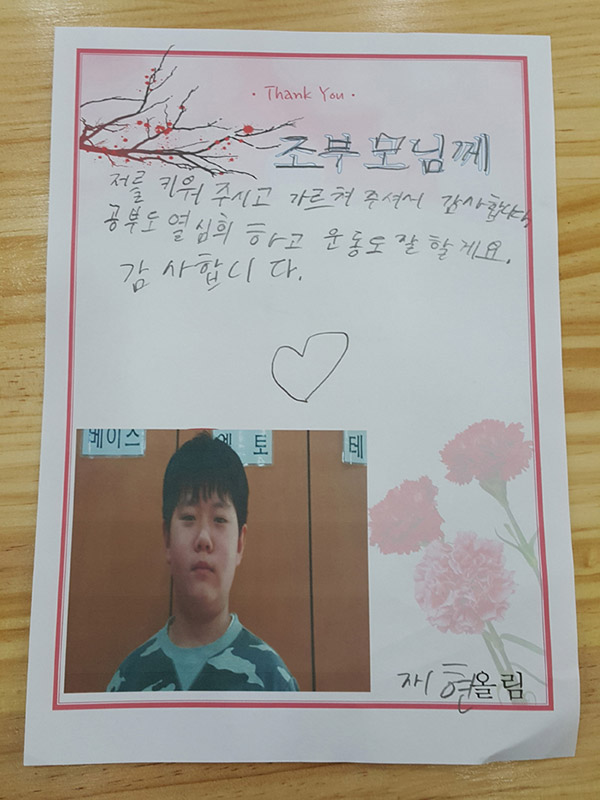 · Thank You ·
조부모님께
저를 키워 주시고 가르쳐 주셔서 감사합니다.
공부도 열심희 하고 운동도 잘 할게요.
감사합니다.
베이스
토
테
재현올림